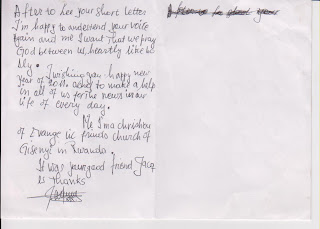 After to hee your short letter
I'm happy to understend your voice
again and me I want that we pray
God between us, heartly like bo
dly. I wishing you happy new
year of 2011. asked to make a help
in all of us for the news in our
life of every day.
Me Ima christian
of Evange lic friends church of
Gisenyi in Rwanda.
It was your good friend Jacq
is Thanks